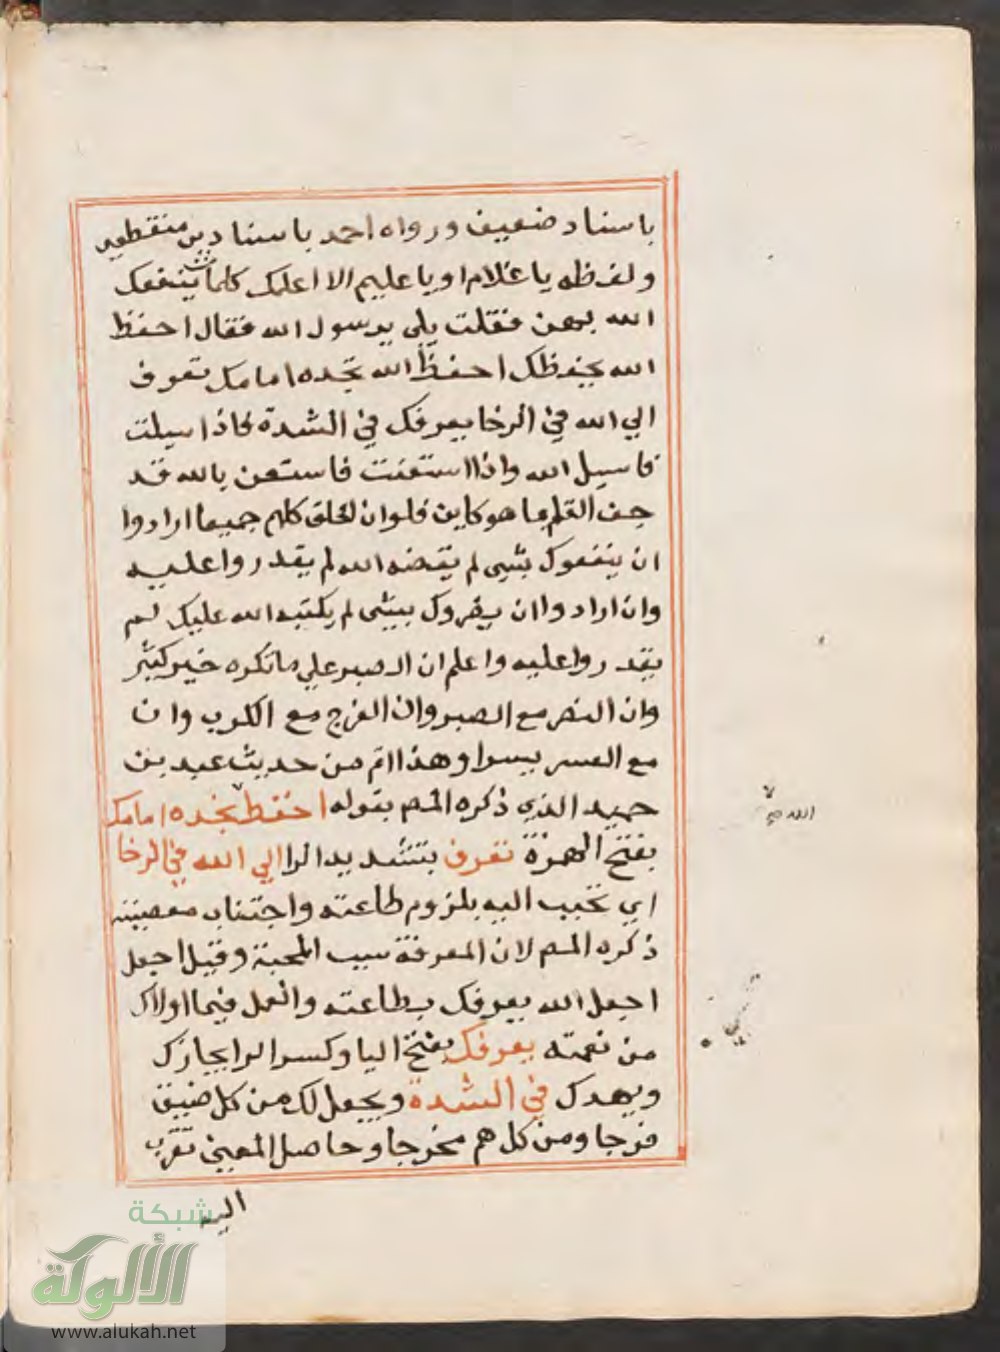 باسناد ضعيف ورواه احمد باسنادين منقطعين
ولفظه يا غلام او يا عليم الا اعلمك كلمات ينفعك
الله بهن فقلت بلى يرسول الله فقال احفظ
الله يحفظك احفظ الله تجده امامك تعرف
الي الله في الرخا يعرفك في الشدة فاذا سيلت
فاسيل الله واذا استعنت فاستعن بالله قد
جف القلم بما هو كاين فلو ان الخلق كلهم جميعا ارادوا
ان ينفعوك بشي لم يقضه الله لم يقدروا عليه
وان ارادوا ان يضروك بشي لم يكتبه الله عليك لم
يقدروا عليه واعلم ان الصبر علي ما تكره خير كثير
وان النصر مع الصبر وان الفرج مع الكرب وان
مع العسر يسرا وهذا اتم من حديث عبد بن
حميد الذي ذكره المص بقوله احفظ تجده امامك
بفتح الهمزة تعرف بتشديد الرا الي الله في الرخا
اي تحبب اليه بلزوم طاعته واجتناب معصيته
ذكره المص لان المعرفة سبب المحبة وقيل اجعل
اجعل الله يعرفك بطاعته والعمل فيما اولاك
من نعمته يعرفك بفتح اليا وكسر الرا يجازك
ويهدك في الشدة ويجعل لك من كل ضيق
فرجا ومن كل هم مخرجا وحاصل المعني تقرب
اليه
الله صح
شبكة
الألوكة
www.alukah.net